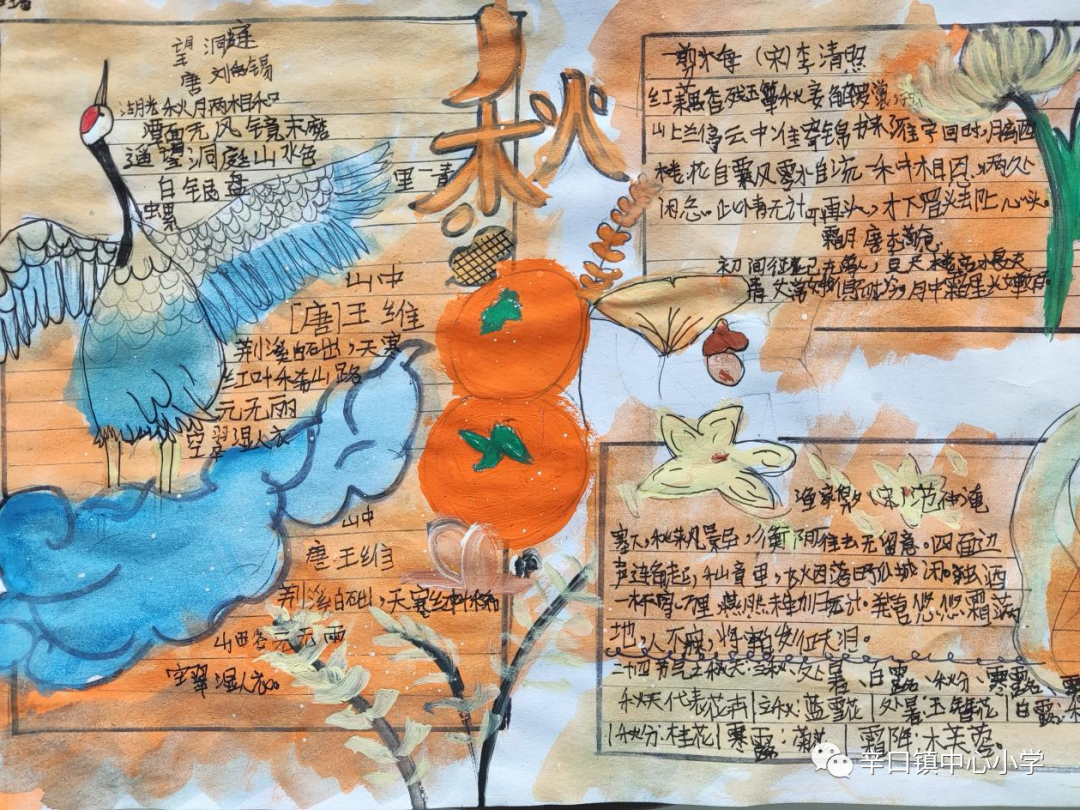 秋
望洞庭
唐 刘禹锡
湖光秋月两相和
潭面无风镜未磨
遥望洞庭山水色
白银盘里一青
螺
山中
[唐]王维
荆溪白石出,天寒
红叶稀山路
元无雨
空翠湿人衣
山中
唐王维
荆溪白石出,天寒红叶稀
山路元无雨
空翠湿人衣。
一剪梅 (宋)李清照
红藕香残玉簟秋
云中谁寄锦书来 雁字回时,月满西
楼,花自飘风零水自流 一种相思,两处
闲愁。此情无计
霜月 唐李商隐
初闻征雁已无蝉,
月中霜里
渔家傲 (宋)范仲淹
塞下秋来风景异,衡阳雁去无留意。四面边
声连角起,千
里,长烟落日孤城闭。浊酒
一杯家万里 燕然未勒归无计。羌管悠悠霜满
地,人不寐,将军发征夫泪。
二十四节气之秋天:立秋、处暑、白露、秋分、寒露
秋天代表花卉|立秋:蓝雪花|处暑:玉簪花|白露:
|秋分:桂花|寒露:|霜降:木芙蓉。
辛口镇中心小学